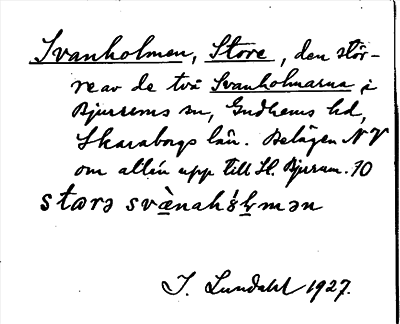 Svanholmen, Store, den stör-
re av de två Svanholmarna i
Bjurums sn, Gudhems hd,
Skaraborgs län. Belägen NV
om allén upp till St. Bjurum. 10
starə svànah
I. Lundahl 1927.